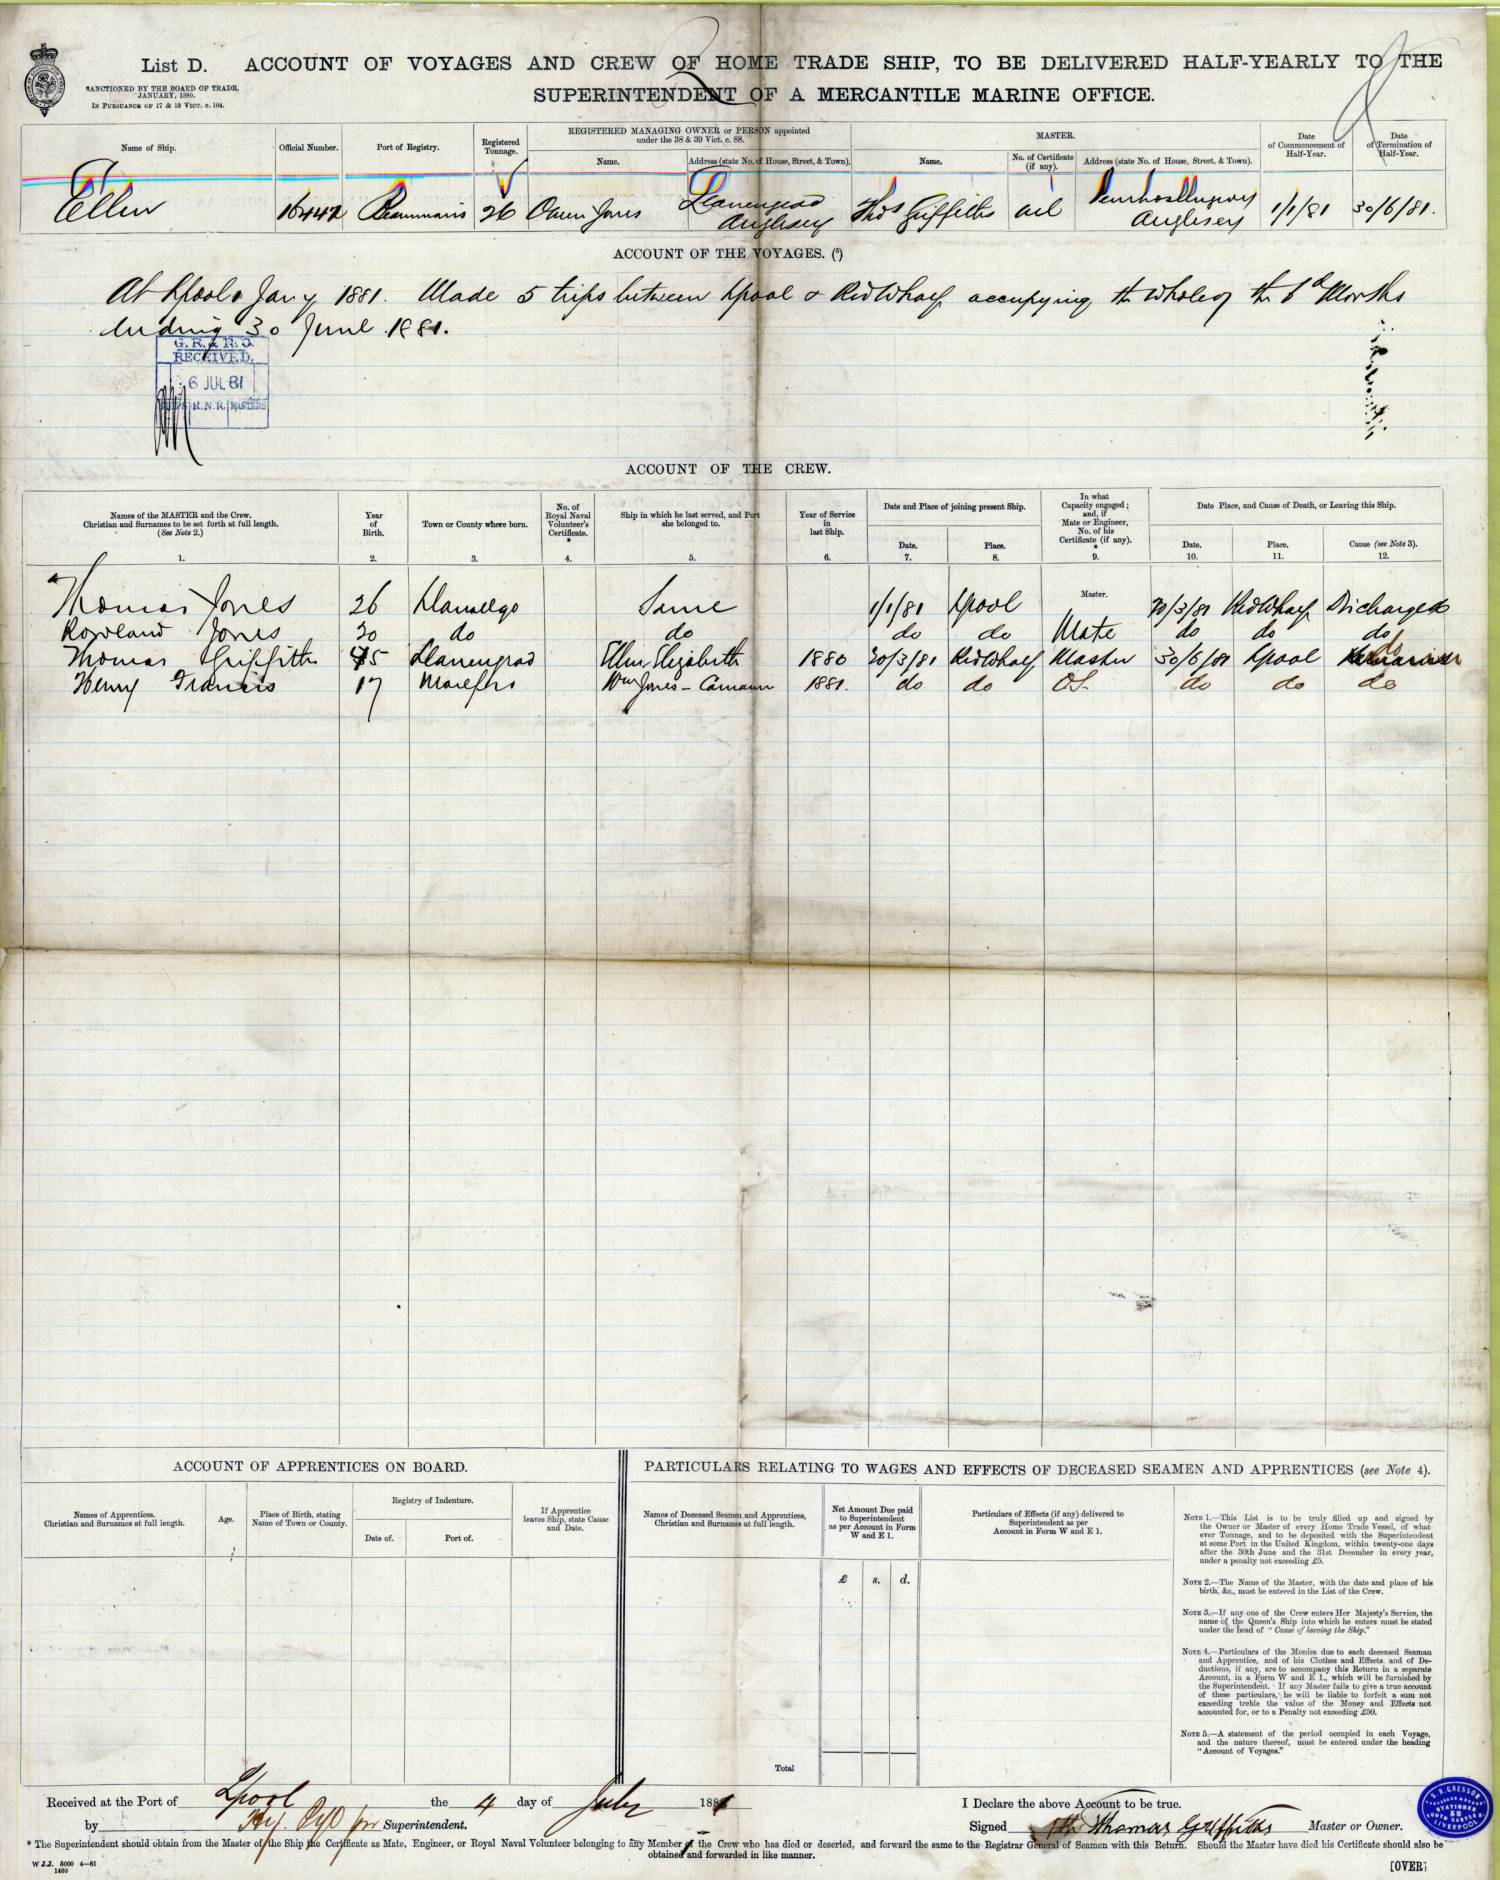 List D. ACCOUNT OF VOYAGES AND CREW OF HOME TRADE SHIP, TO BE DELIVERED HALF-YEARLY TO THE
SUPERINTENDENT OF A MERCANTILE MARINE OFFICE.
SANCTIONED BY THE BOARD OF TRADE,
JANUARY, 1880.
IN PURSUANCE OF 17 & 18 VICT. c. 104.
Name of Ship. Official Number. Port of Registry. Registered Tonnage. REGISTERED MANAGING OWNER or PERSON appointed under the 38 & 39 Vict. c. 88. MASTER. Date of Commencement of Half-Year. Date of Termination of Half-Year.
Name. Address (state No. of House, Street, & Town). Name. No. of Certificate (if any). Address (state No. of House, Street, & Town).
Ellen 16442 Beaumaris 26 Owen Jones Llaneugrad Anglesey Thos Griffiths nil Penrhosllugwy Anglesey 1/1/81 30/6/81.
ACCOUNT OF THE VOYAGES. (5)
At Lpool 1 Jany 1881. Made 5 trips between Lpool & Redwharf occupying the whole of the 6 Months
Ending 30 June 1881.
G. R. & R. O.
RECEIVED.
6 JUL 81
R.N.R. MASTERS
ACCOUNT OF THE CREW.
Names of the MASTER and the Crew. Christian and Surnames to be set forth at full length. (See Note 2.) Year of Birth. Town or County where born. No. of Royal Naval Volunteer's Certificate. * Ship in which he last served, and Port she belonged to. Year of Service in last Ship. Date and Place of joining present Ship. In what Capacity engaged; and, if Mate or Engineer, No. of his Certificate (if any). * Date Place, and Cause of Death, or Leaving this Ship.
Date. Place. Date. Place. Cause (see Note 3).
1. 2. 3. 4. 5. 6. 7. 8. 9. 10. 11. 12.
Thomas Jones 26 Same 1/1/81 Lpool Master. 30/3/81 Redwharf Discharged
Rowland Jones 20 do do do do Mate do do do
Thomas Griffiths 45 Llaneugrad Ellen Elizabeth 1880 30/3/81 Redwharf Master 30/6/81 Lpool do
Henry Francis 17 Moelfre Wm Jones - 1881. do do OS do do do
ACCOUNT OF APPRENTICES ON BOARD.
Names of Apprentices. Christian and Surnames at full length. Age. Place of Birth, stating Name of Town or County. Registry of Indenture. If Apprentice leaves Ship, state Cause and Date.
Date of. Port of.
PARTICULARS RELATING TO WAGES AND EFFECTS OF DECEASED SEAMEN AND APPRENTICES (see Note 4).
Names of Deceased Seamen and Apprentices, Christian and Surnames at full length. Net Amount Due paid to Superintendent as per Account in Form W and E 1. Particulars of Effects (if any) delivered to Superintendent as per Account in Form W and E 1.
£ s. d.
Total
NOTE 1.—This List is to be truly filled up and signed by
the Owner or Master of every Home Trade Vessel, of what-
ever Tonnage, and to be deposited with the Superintendent
at some Port in the United Kingdom, within twenty-one days
after the 30th June and the 31st December in every year,
under a penalty not exceeding £5.
NOTE 2.—The Name of the Master, with the date and place of his
birth, &c., must be entered in the List of the Crew.
NOTE 3.—If any one of the Crew enters Her Majesty's Service, the
name of the Queen's Ship into which he enters must be stated
under the head of "Cause of leaving the Ship."
NOTE 4.—Particulars of the Monies due to each deceased Seaman
and Apprentice, and of his Clothes and Effects and of De-
ductions, if any, are to accompany this Return in a separate
Account, in a Form W and E 1., which will be furnished by
the Superintendent. If any Master fails to give a true account
of these particulars, he will be liable to forfeit a sum not
exceeding treble the value of the Money and Effects not
accounted for, or to a Penalty not exceeding £50.
NOTE 5.—A statement of the period occupied in each Voyage,
and the nature thereof, must be entered under the heading
"Account of Voyages."
Received at the Port of Lpool the 4 day of July 1881
by Hy. for Superintendent.
I Declare the above Account to be true.
Signed Thomas Griffiths Master or Owner.
S. R. CRESSON
STATIONER
LIVERPOOL
* The Superintendent should obtain from the Master of the Ship the Certificate as Mate, Engineer, or Royal Naval Volunteer belonging to any Member of the Crew who has died or deserted, and forward the same to the Registrar General of Seamen with this Return. Should the Master have died his Certificate should also be
obtained and forwarded in like manner.
W J.J. 5000 4—81
1460
[OVER]